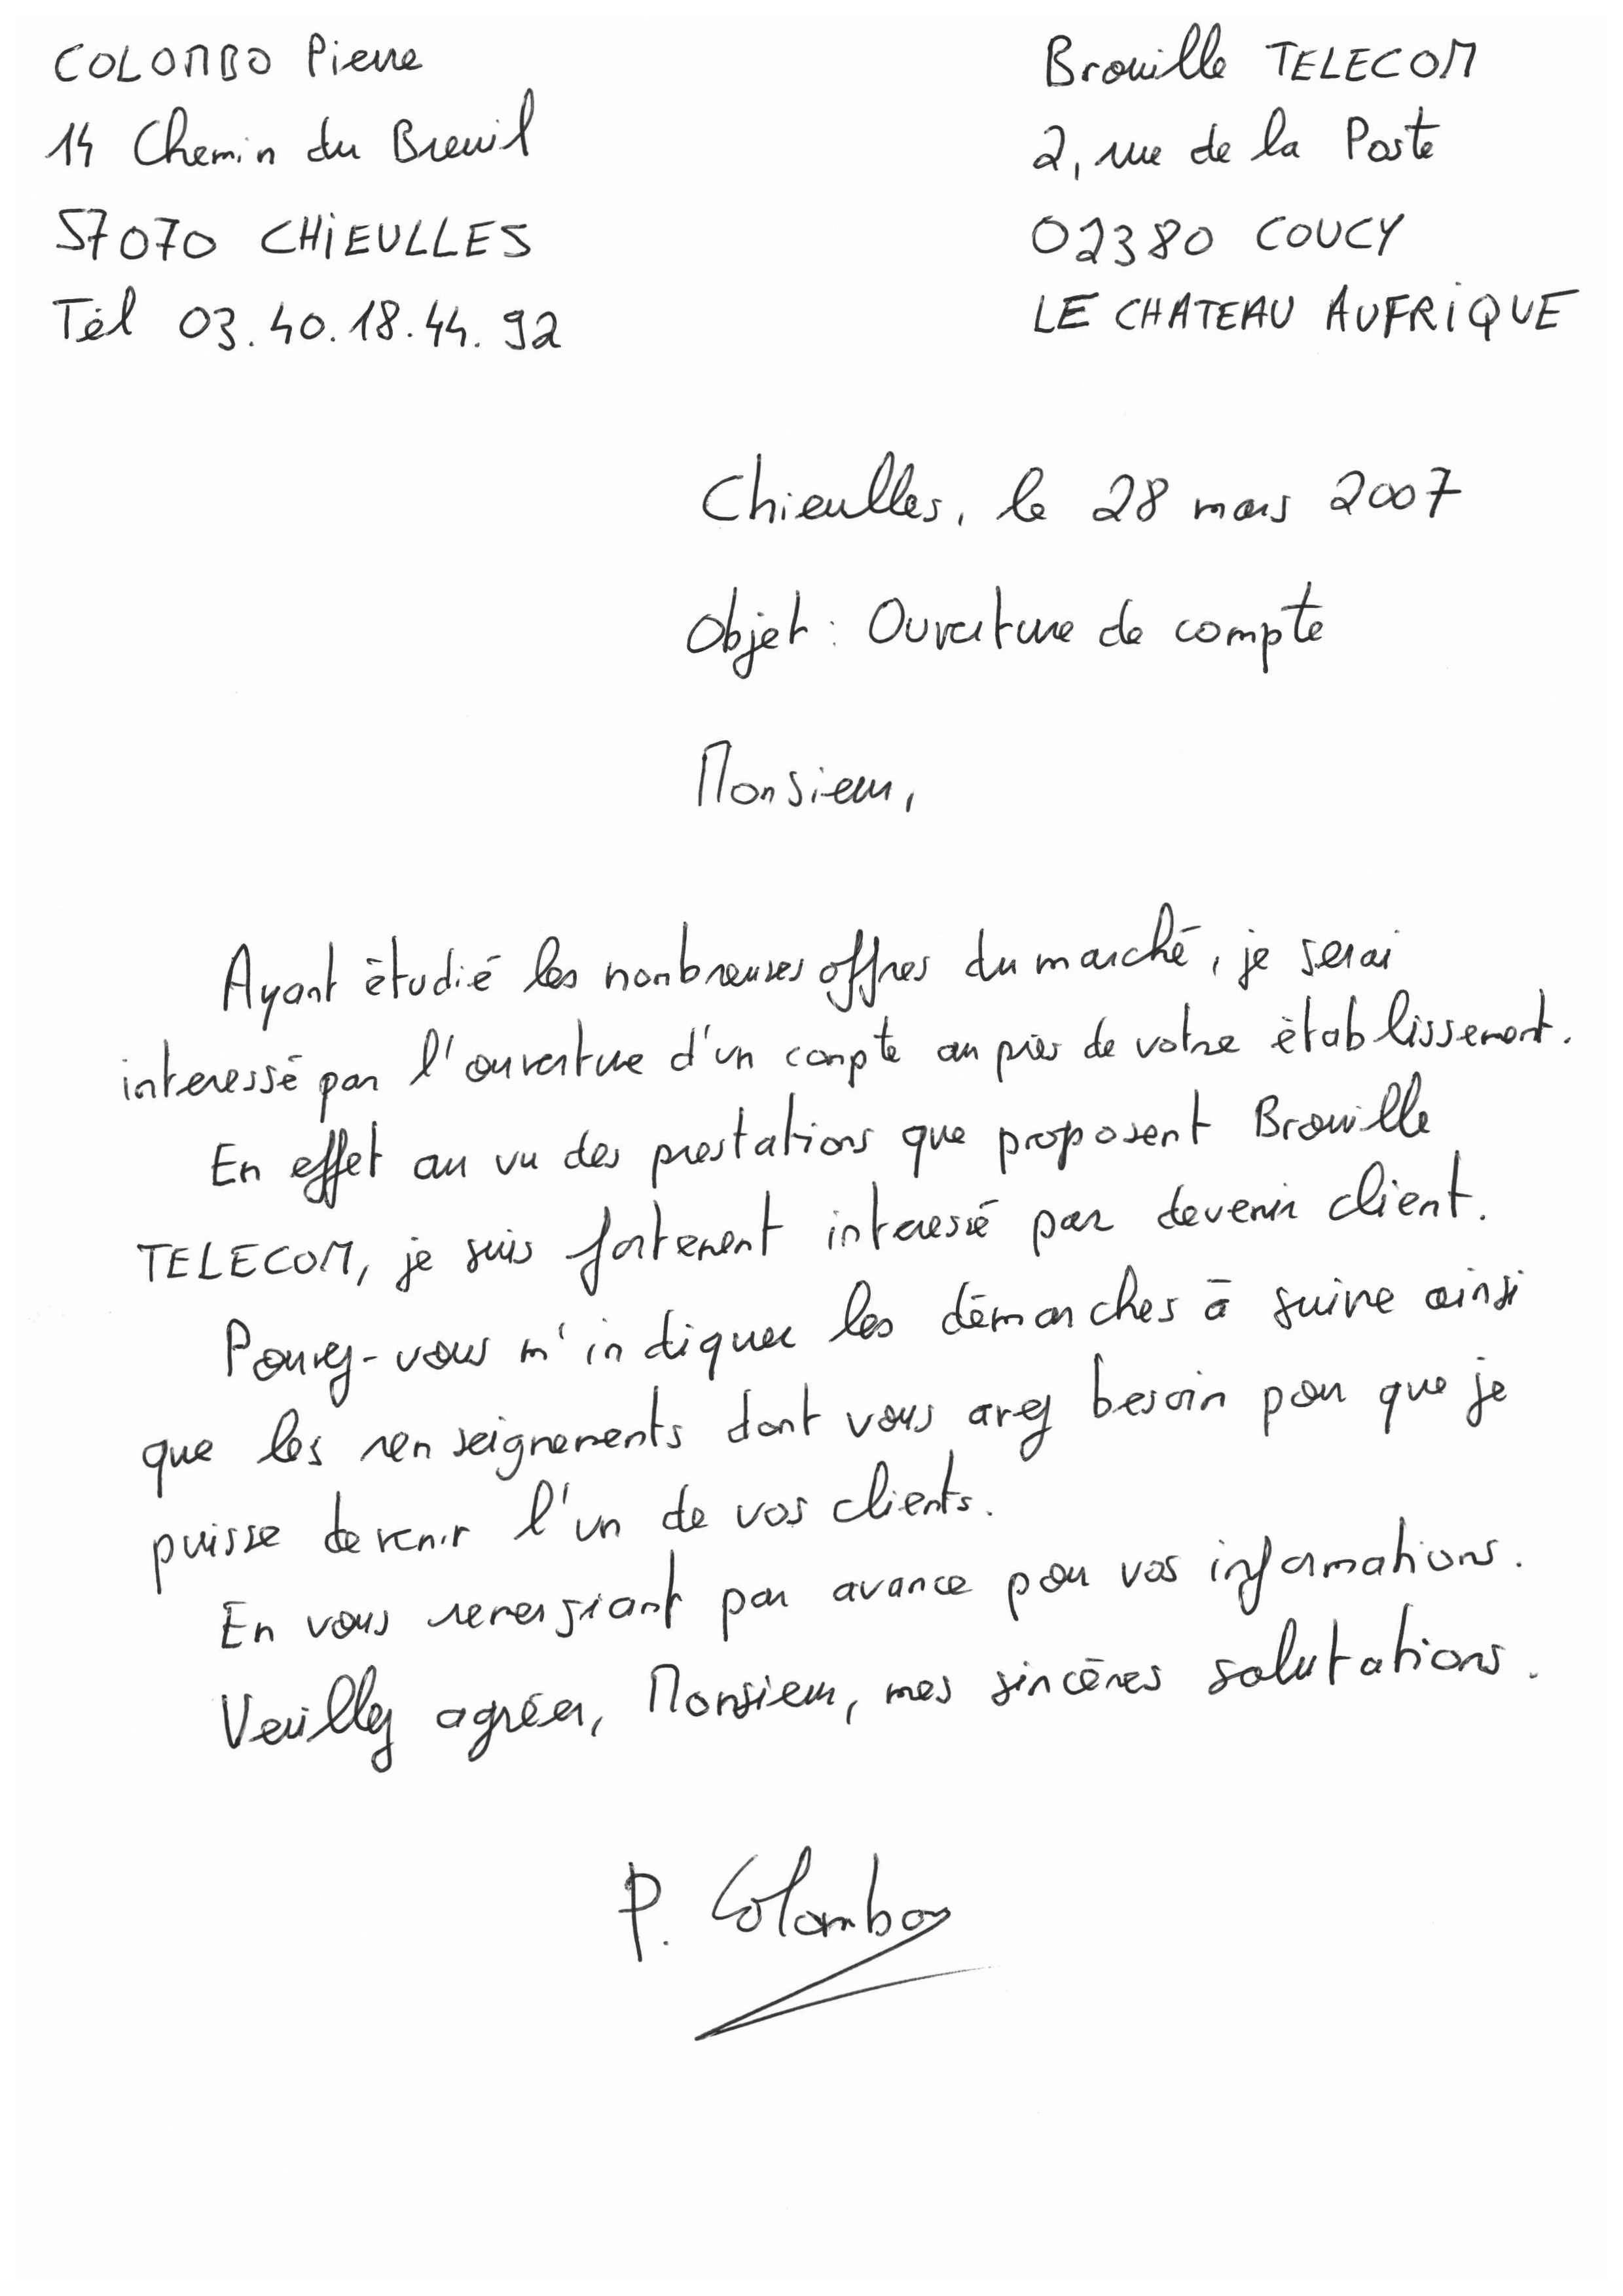 COLOMBO Pierre
14 Chemin du Breuil
57070 CHIEULLES
Tél 03.40.18.44.92
Brouille TELECOM
2, rue de la Poste
02380 COUCY
LE CHATEAU AUFRIQUE
Chieulles, le 28 mars 2007
Objet : Ouverture de compte
Monsieur,
Ayant étudié les nombreuses offres du marché, je serai
interessé par l'ouverture d'un compte au près de votre établissement.
En effet au vu des prestations que proposent Brouille
TELECOM, je suis fortement interessé par devenir client.
Pouvez-vous m'indiquer les démarches à suivre ainsi
que les renseignements dont vous avez besoin pour que je
puisse devenir l'un de vos clients.
En vous remersiant par avance pour vos informations.
Veuillez agréer, Monsieur, mes sincères salutations.
P. Colombo